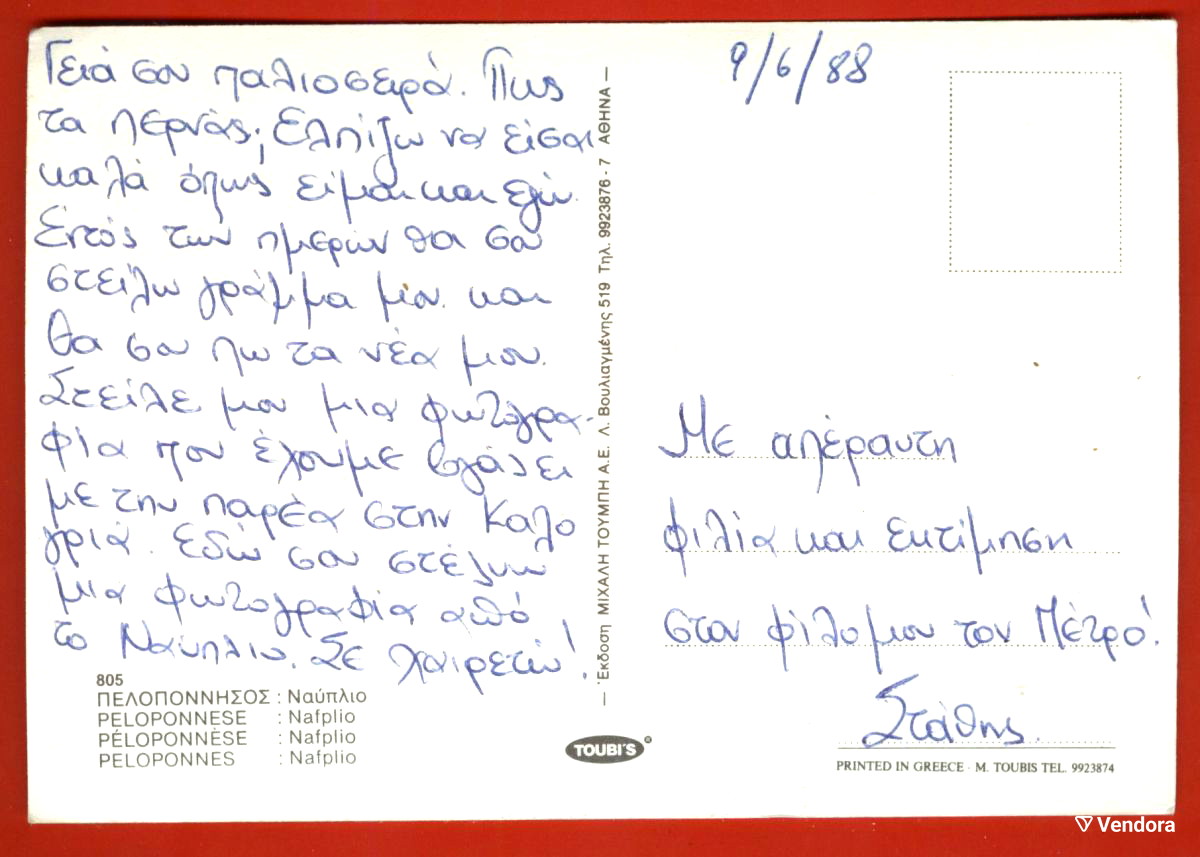 Γειά σου παλιοσειρά. Πως
τα περνάς; Ελπίζω να είσαι
καλά όπως είμαι και εγώ.
Εντός των ημερών θα σου
στείλω γράμμα μου και
θα σου πω τα νέα μου.
Στείλε μου μια φωτογρα-
φία που έχουμε βγάλει
με την παρέα στην Καλο
γριά. Εδώ σου στέλνω
μια φωτογραφία από
το Ναύπλιο. Σε χαιρετώ!
805
ΠΕΛΟΠΟΝΝΗΣΟΣ : Ναύπλιο
PELOPONNESE : Nafplio
PÉLOPONNÈSE : Nafplio
PELOPONNES : Nafplio
— Έκδοση ΜΙΧΑΛΗ ΤΟΥΜΠΗ Α.Ε. Λ. Βουλιαγμένης 519 Τηλ. 9923876 - 7 ΑΘΗΝΑ —
TOUBI'S
9/6/88
Με απέραντη
φιλία και εκτίμηση
στον φίλο μου τον Πέτρο!
Στάθης.
PRINTED IN GREECE - M. TOUBIS TEL. 9923874
Vendora